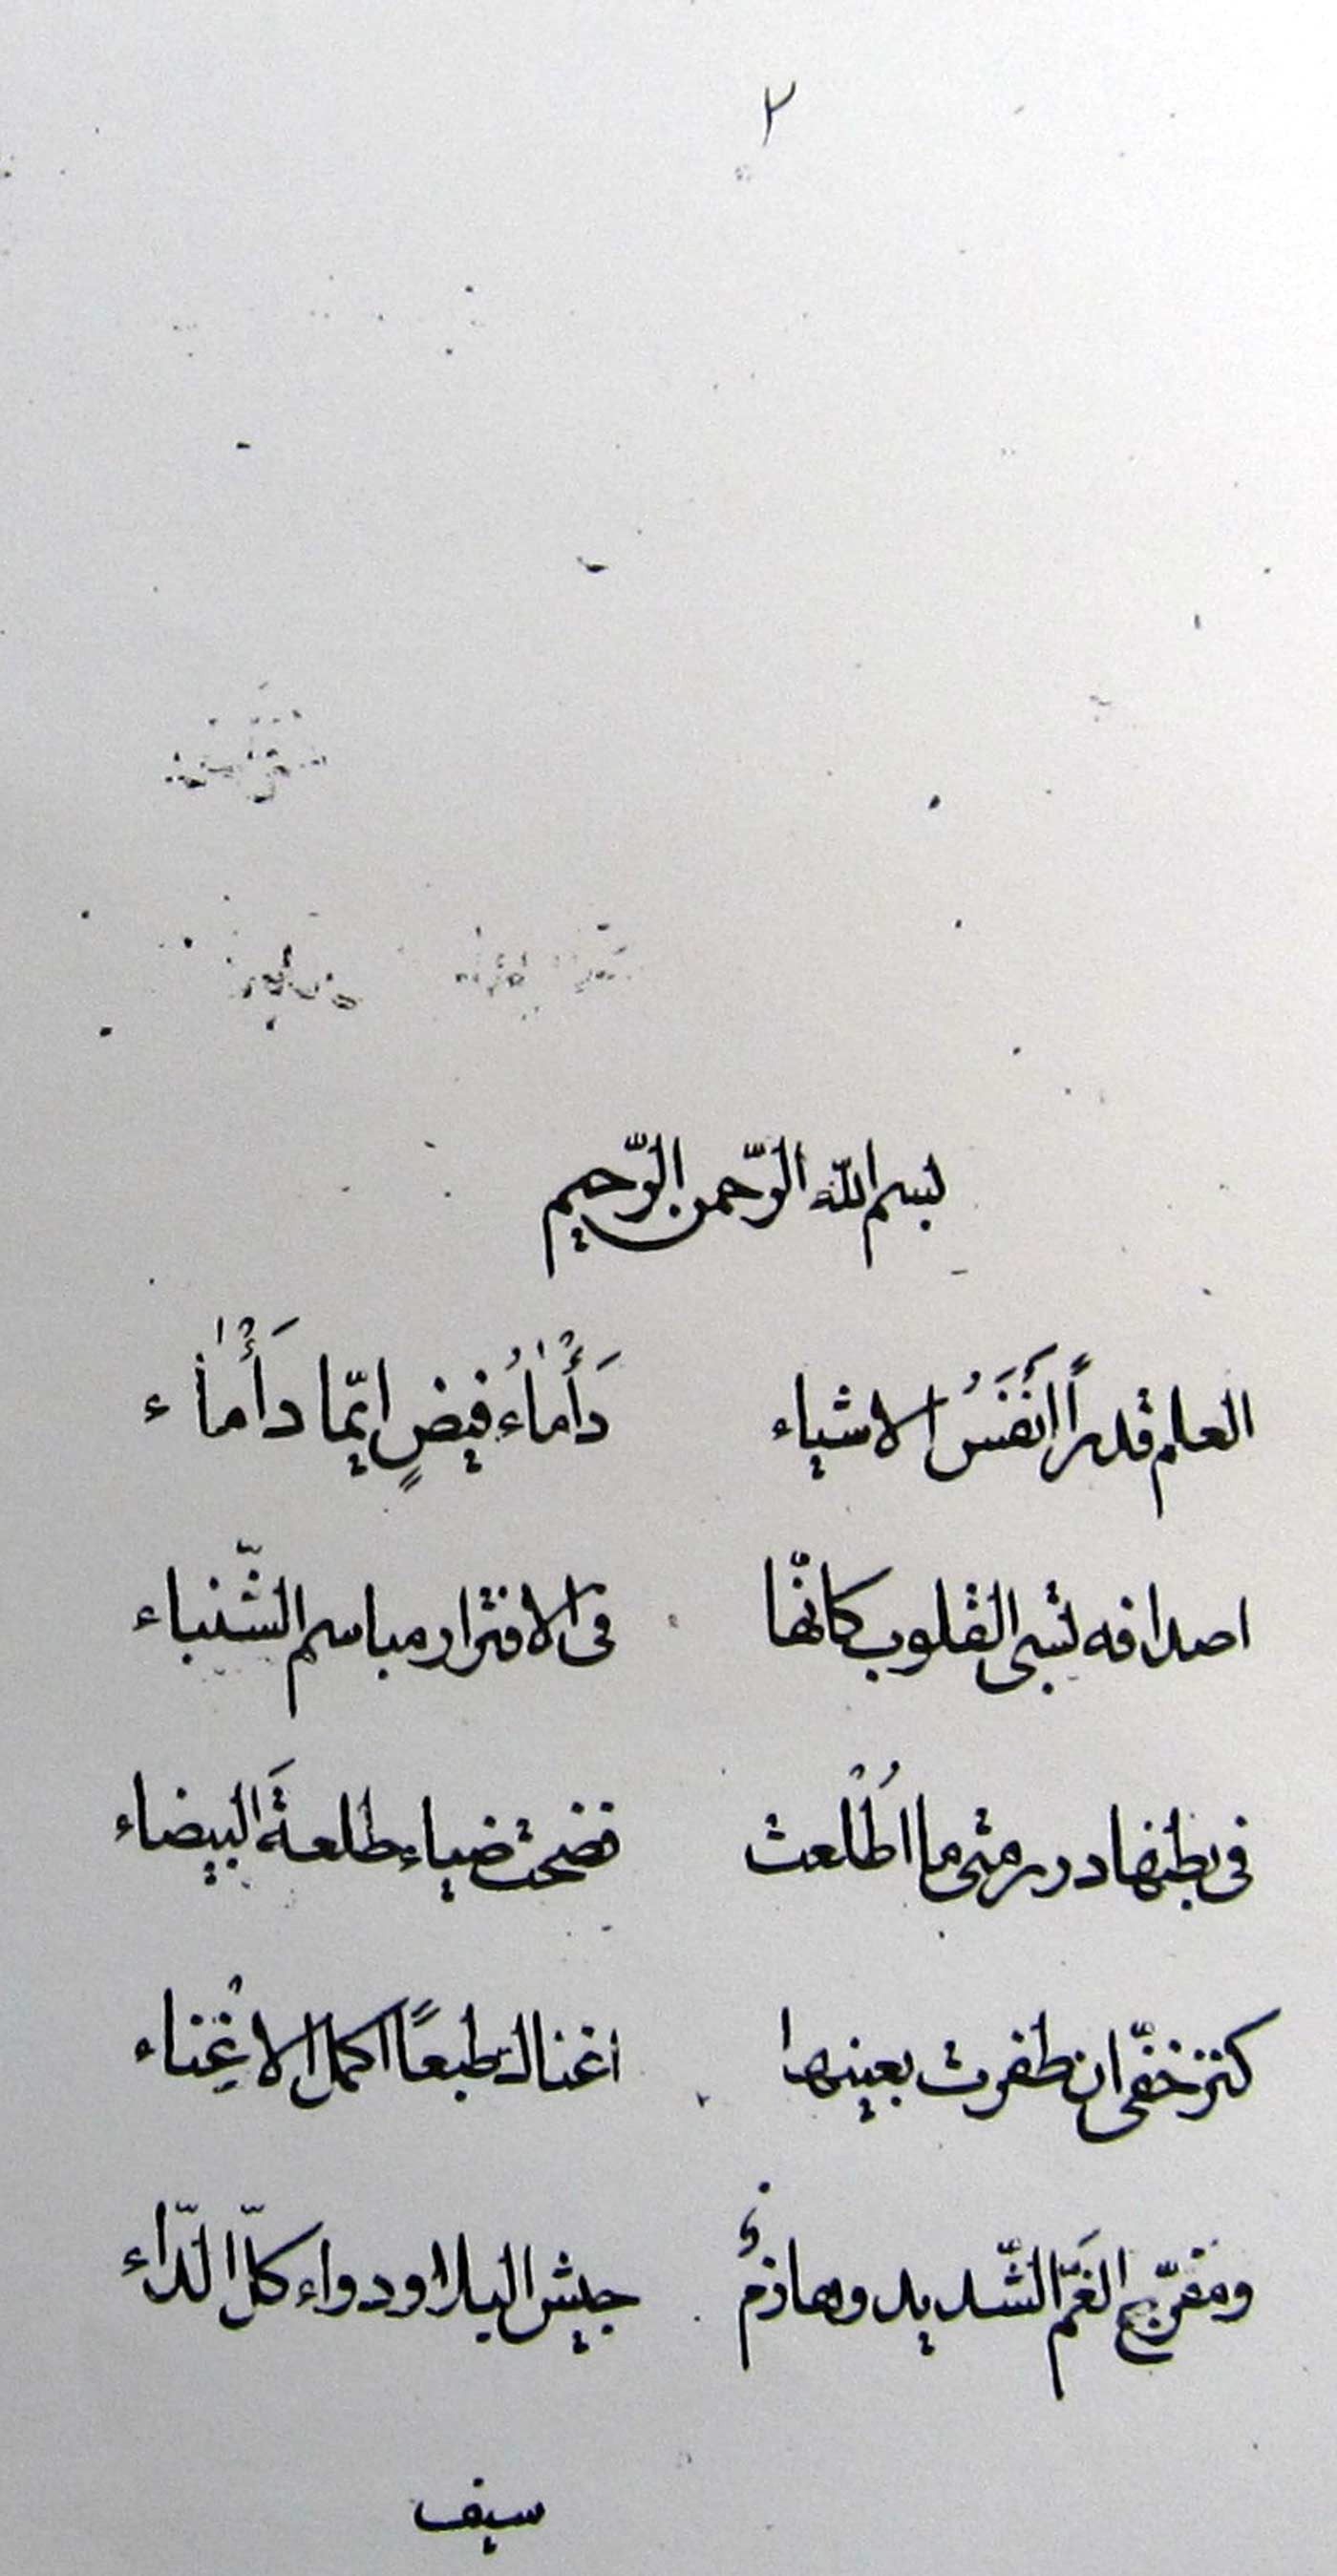 ٢
بسم الله الرّحمن الرّحيم
العلم قدراً اَنفَسُ الاشياء دَأْمَاءُ فيضٍ ايّما دَأْمَاء
اصدافه تسبى القلوب كانّها فى الافترار مباسم الشّنباء
فى بطنها درر متى ما اُطْلعت فضحت ضياء طلعةَ البيضاء
كنز خفّى ان ظفرت بعينها اغناك طبعًا اكمل الاغْنِاء
ومفرّج الغَمّ الشّديد وهازمُ جيش البلا ودواء كلّ الدّاء
سيف